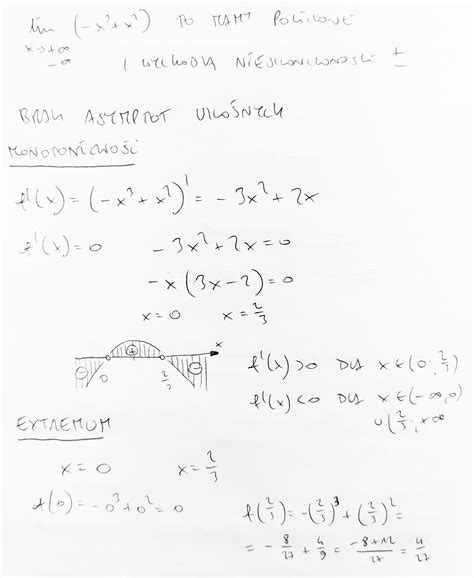 lim (-x³+x²) TO MAMY POLICZONE
x→+∞
-∞
I WYCHODZĄ NIESKOŃCZONOŚCI ±
BRAK ASYMPTOT UKOŚNYCH
MONOTONICZNOŚĆ
f'(x) = (-x³+x²)' = -3x²+2x
f'(x)=0 -3x²+2x=0
-x(3x-2)=0
x=0 x=2/3
- 0 + 2/3 - x
f'(x)>0 DLA x∈(0; 2/3)
f'(x)<0 DLA x∈(-∞,0)
∪(2/3; +∞
EXTREMUM
x=0 x=2/3
f(0)=-0³+0²=0 f(2/3)=-(2/3)³+(2/3)²=
=-8/27+4/9=(-8+12)/27=4/27